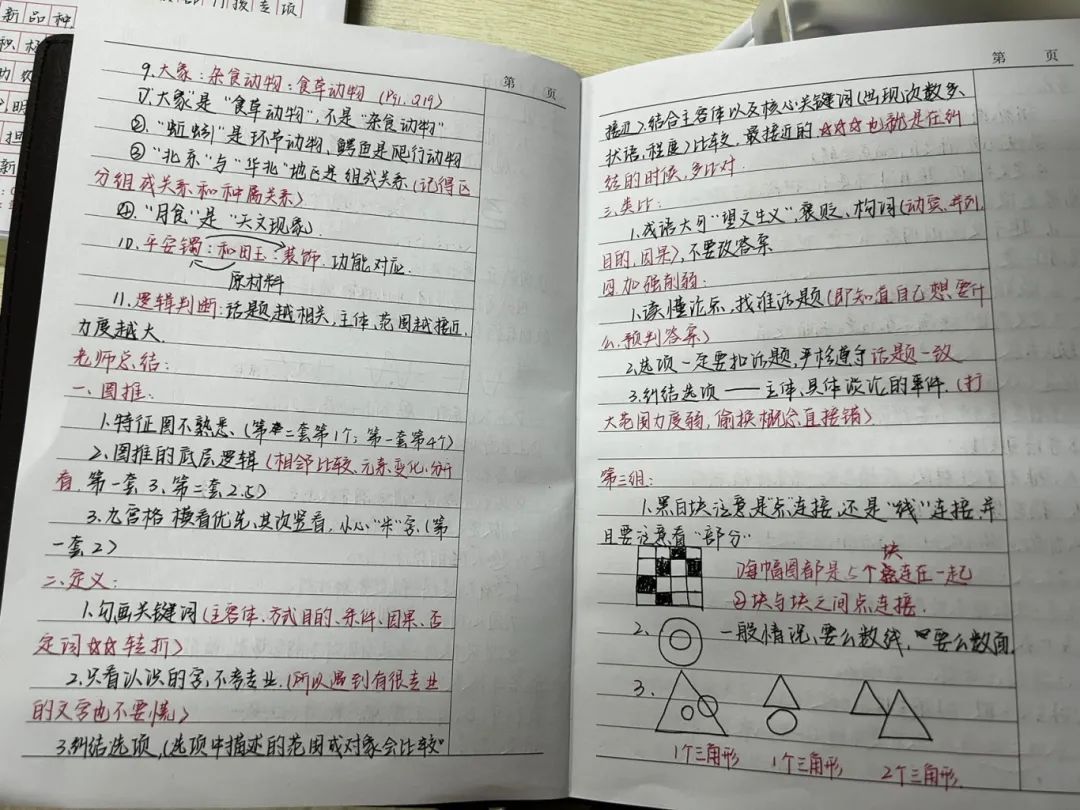 新品种
积极
助农
明
担
新
项
第 页
9.大象：杂食动物：食草动物 (P91. Q19)
①."大象"是"食草动物"，不是"杂食动物"
②."蚯蚓"是环节动物、鳄鱼是爬行动物
③"北京"与"华北"地区是组成关系(记得区
分组成关系和种属关系)
④."月食"是"天文现象
10.平安镯：和田玉：装饰.功能对应.
原材料
11.逻辑判断：话题越相关，主体、范围越接近，
力度越大.
老师总结：
一、图推：
1.特征图不熟悉、(第二套第1个；第一套第4个)
2.图推的底层逻辑(相邻比较、元素变化、分开
看.第一套3、第二套2.5)
3.九宫格 横看优先，其次竖看，小心"米"字.(第
一套2)
二、定义：
1.勾画关键词(主客体、方式目的、条件、因果、否
定词☆☆转折)
2.只看认识的字，不考专业.(所以遇到有很专业
的文字也不要慌)
3.纠结选项，(选项中描述的范围或对象会比较"
第 页
接近).结合主客体以及核心关键词(出现次数多、
状语、程度)比较，最接近的☆☆☆也就是在纠
结的时候，多比对.
三.类比：
1.成语大可"望文生义"，褒贬、构词(动宾、并列、
目的、因果)，不要改答案
四.加强削弱：
1.读懂论点，找准话题(即知道自己想要什
么.预判答案)
2.选项一定要扣话题，严格遵守话题一致
3.纠结选项——主体、具体谈论的事件.(打
大范围力度弱，偷换概念直接错)
第三组：
1.黑白块注意是"点"连接，还是"线"连接，并
且要注意看"部分"
块
①每幅图都是5个连在一起
②块与块之间点连接.
2.一般情况，要么数线，要么数面.
3.
1个三角形 1个三角形 2个三角形.